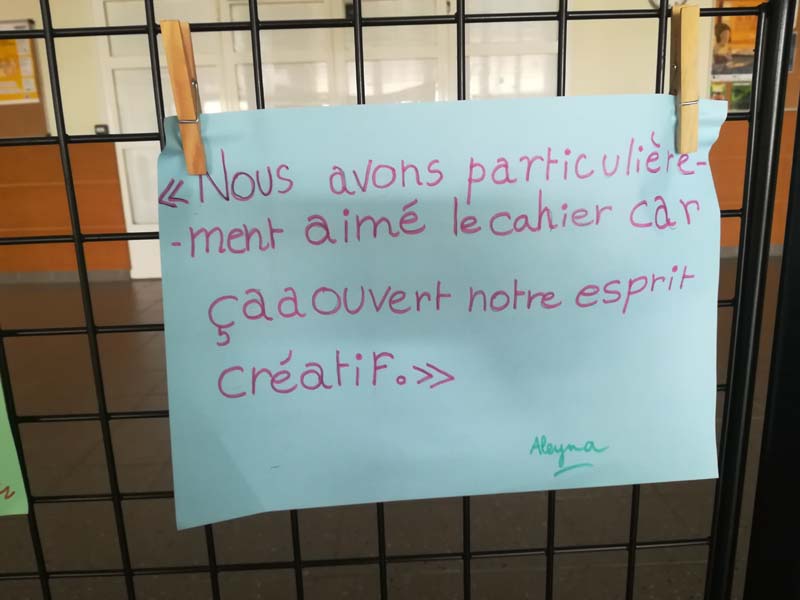 « Nous avons particulière-
-ment aimé le cahier car
ça a ouvert notre esprit
créatif. »
Aleyna